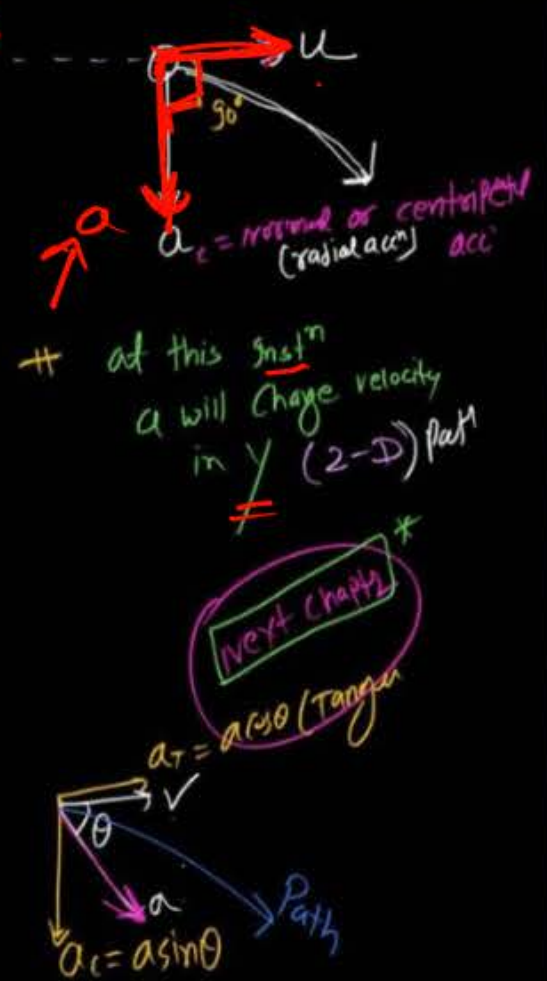 u
90°
a
a c = normal or centripetal
(radial accⁿ) acc
# at this Instⁿ
a will Chage velocity
in y (2-D) Path
*
Next Chapte
aT = a cosθ (Tangen
v
θ
a
Path
ac = a sinθ